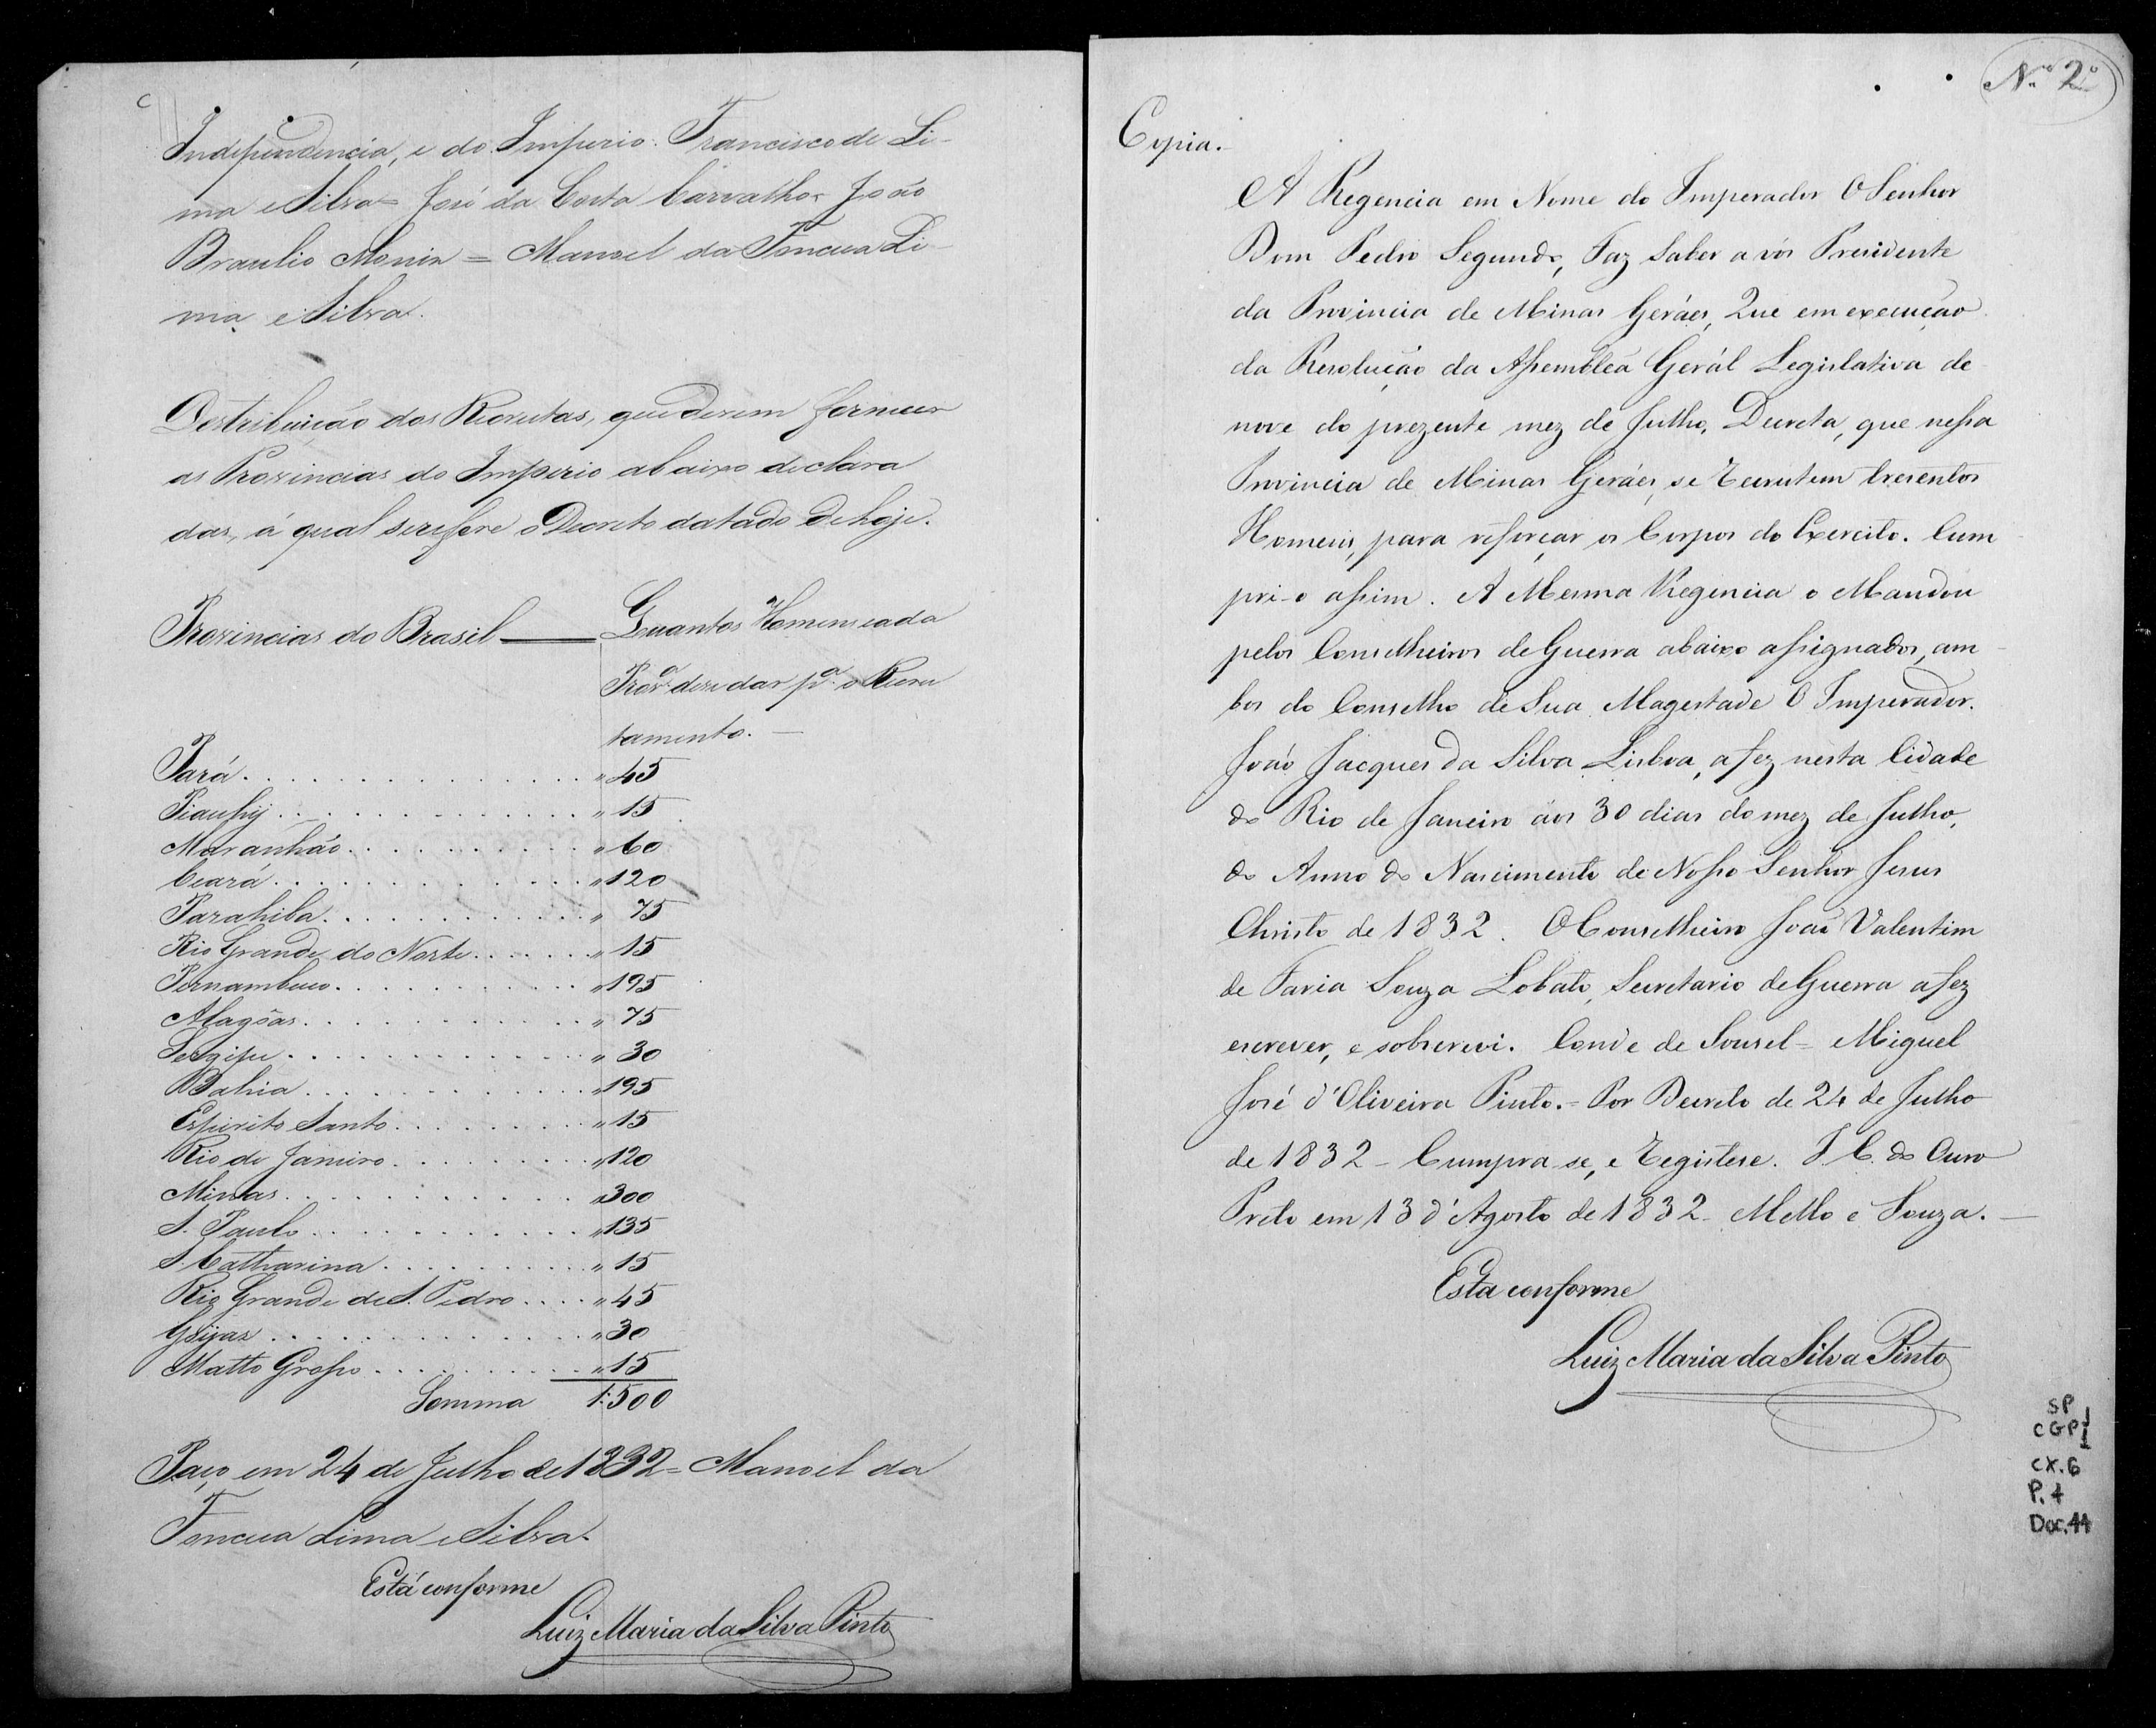 Independencia, e do Imperio. Francisco de Li-
ma e Silva = José da Costa Carvalho = João
Braulio Moniz = Manoel da Fonceca Li-
ma e Silva.
Destribuição dos Recrutas, que devem fornecer
as Provincias do Imperio abaixo declara
das, á qual se refere o Decreto datado de hoje.
Provincias do Brasil — Quantos Homens cada
Prov.ª deve dar p.ª o Recru
tamento. —
Pará . . . . . . . . . . . . . . . " 45
Piauhÿ . . . . . . . . . . . . . . " 15
Maranhão . . . . . . . . . . " 60
Ceará . . . . . . . . . . . . . . " 120
Parahiba . . . . . . . . . . . . " 75
Rio Grande do Norte . . . . . . " 15
Pernambuco . . . . . . . . . . . " 195
Alagôas . . . . . . . . . . . . " 75
Sergipe . . . . . . . . . . . . . " 30
Bahia . . . . . . . . . . . . . " 195
Espirito Santo . . . . . . . . . " 15
Rio de Janeiro . . . . . . . . . " 120
Minas . . . . . . . . . . . . . " 300
S. Paulo . . . . . . . . . . . . " 135
S. Catharina . . . . . . . . . . " 15
Rio Grande de S. Pedro . . . . " 45
Goÿaz . . . . . . . . . . . . . . " 30
Matto Grosso . . . . . . . . . . " 15
Somma 1:500
Paço, em 24 de Julho de 1832 = Manoel da
Fonceca Lima e Silva.
Está conforme
Luiz Maria da Silva Pinto
Nº 2º
Copia.
A Regencia em Nome do Imperador O Senhor
Dom Pedro Segundo, Faz Saber a vós Presidente
da Provincia de Minas Geráes, Que em execução
da Resolução da Assembléa Gerál Legislativa de
nove do prezente mez de Julho, Decreta, que nessa
Provincia de Minas Geráes, se recrutem tresentos
Homens, para reforçar os Corpos do Exercito. Cum
pri-o assim. A Mesma Regencia o Mandou
pelos Conselheiros de Guerra abaixo assignados, am-
bos do Conselho de Sua Magestade O Imperador.
João Jacques da Silva Lisboa, a fez nesta Cidade
do Rio de Janeiro aos 30 dias do mez de Julho,
do Anno do Nascimento de Nosso Senhor Jesus
Christo de 1832. O Conselheiro João Valentim
de Faria Souza Lobato, Secretario de Guerra a fez
escrever, e sobscrevi. Conde de Sousel = Miguel
José d'Oliveira Pinto. = Por Decreto de 24 de Julho
de 1832 - Cumpra-se, e registese. I. C. do Ouro
Preto em 13 d'Agosto de 1832 - Mello e Souza. —
Esta conforme
Luiz Maria da Silva Pinto
SP 1
CGP 1
CX. 6
P. 1
Doc. 44